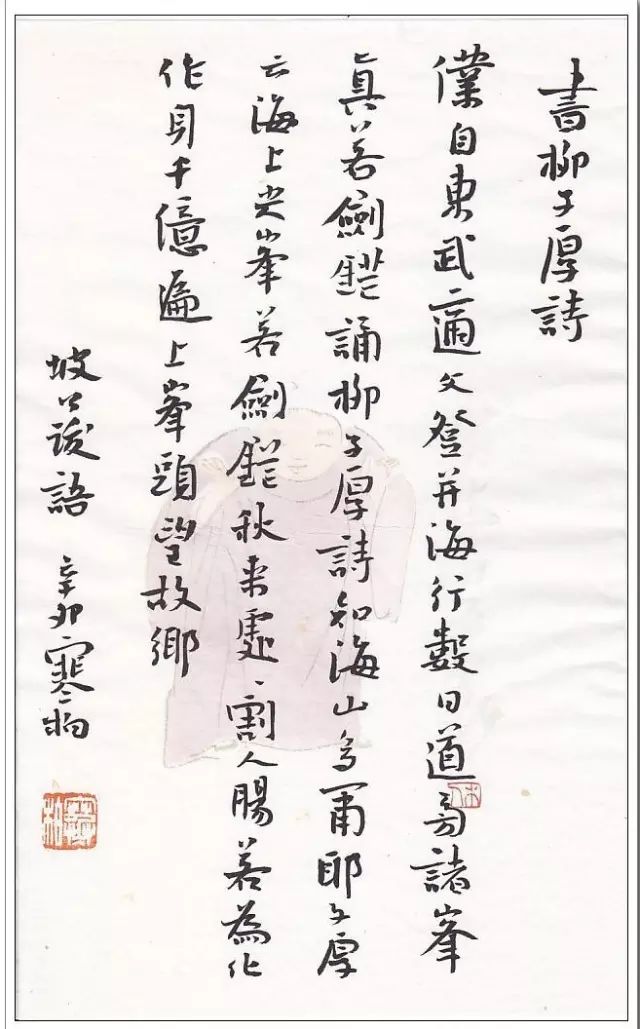 書柳子厚詩
僕自東武適文登并海行數日道旁諸峯
眞若劍鋩誦柳子厚詩知海山多爾耶子厚
云海上尖峯若劍鋩秋來處、割人腸若為化
作身千億遍上峯頭望故鄉
坡公跋語 辛卯寒柏